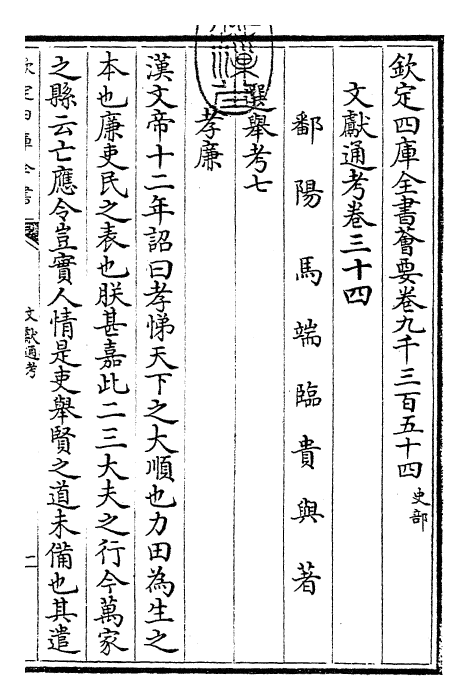 欽定四庫全書薈要卷九千三百五十四 史部
文獻通考卷三十四
鄱陽馬端臨貴與著
選舉考七
孝廉
漢文帝十二年詔曰孝悌天下之大順也力田為生之
本也廉吏民之表也朕甚嘉此二三大夫之行今萬家
之縣云亡應令豈實人情是吏舉賢之道未備也其遣
欽定四庫全書
文獻通考